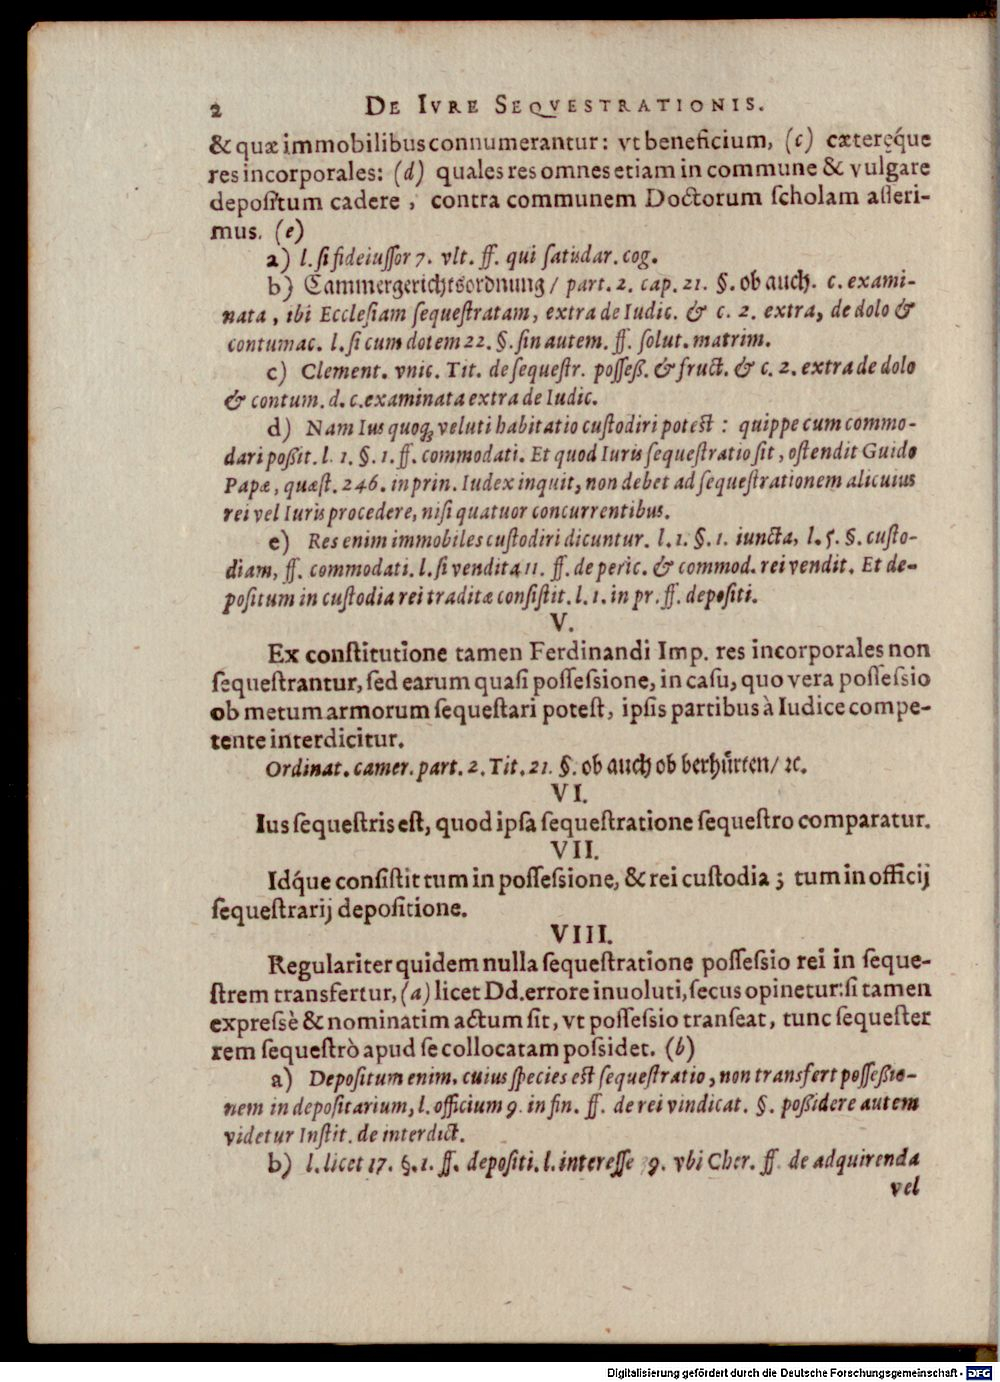 2 DE IVRE SEQVESTRATIONIS.
& quæ immobilibus connumerantur: vt beneficium, (c) cæteręq́ue
res incorporales: (d) quales res omnes etiam in commune & vulgare
depositum cadere, contra communem Doctorum scholam asseri-
mus. (e)
a) l. si fideiussor 7. vlt. ff. qui satisdar. cog.
b) Cammergerichtsordnung / part. 2. cap. 21. §. ob auch. c. exami-
nata, ibi Ecclesiam sequestratam, extra de Iudic. & c. 2. extra, de dolo &
contumac. l. si cum dotem 22. §. sin autem. ff. solut. matrim.
c) Clement. vnic. Tit. de sequestr. posseß. & fruct. & c. 2. extra de dolo
& contum. d. c. examinata extra de Iudic.
d) Nam Ius quoq; veluti habitatio custodiri potest: quippe cum commo-
dari poßit. l. 1. §. 1. ff. commodati. Et quod Iuris sequestratio sit, ostendit Guido
Papæ, quæst. 246. in prin. Iudex inquit, non debet ad sequestrationem alicuius
rei vel Iuris procedere, nisi quatuor concurrentibus.
e) Res enim immobiles custodiri dicuntur. l. 1. §. 1. iuncta, l. 5. §. custo-
diam, ff. commodati. l. si vendita 11. ff. de peric. & commod. rei vendit. Et de-
positum in custodia rei traditæ consistit. l. 1. in pr. ff. depositi.
V.
Ex constitutione tamen Ferdinandi Imp. res incorporales non
sequestrantur, sed earum quasi possessione, in casu, quo vera possessio
ob metum armorum sequestari potest, ipsis partibus à Iudice compe-
tente interdicitur.
Ordinat. camer. part. 2. Tit. 21. §. ob auch ob berhürten / ꝛc.
VI.
Ius sequestris est, quod ipsa sequestratione sequestro comparatur.
VII.
Idq́ue consistit tum in possessione, & rei custodia; tum in officij
sequestrarij depositione.
VIII.
Regulariter quidem nulla sequestratione possessio rei in seque-
strem transfertur, (a) licet Dd. errore inuoluti, secus opinetur: si tamen
expressè & nominatim actum sit, vt possessio transeat, tunc sequester
rem sequestrò apud se collocatam possidet. (b)
a) Depositum enim, cuius species est sequestratio, non transfert posseßio-
nem in depositarium, l. officium 9. in fin. ff. de rei vindicat. §. poßidere autem
videtur Instit. de interdict.
b) l. licet 17. §. 1. ff. depositi. l. interesse 39. vbi Cher. ff. de adquirenda
vel
Digitalisierung gefördert durch die Deutsche Forschungsgemeinschaft - DFG